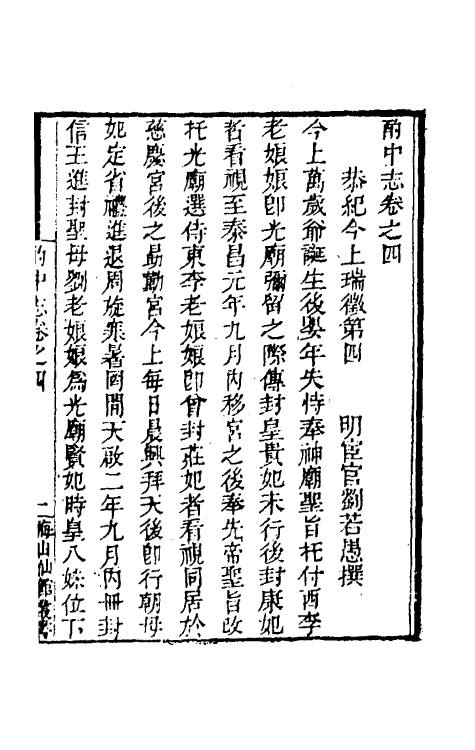 酌中志卷之四
恭紀今上瑞徵第四　明宦官劉若愚撰
今上萬歲爺誕生後數年失恃奉神廟聖旨托付西李
老娘娘卽光廟彌留之際傳封皇貴妃未行後封康妃
者看視至泰昌元年九月內移宮之後奉先帝聖旨改
托光廟選侍東李老娘娘卽曾封莊妃者看視同居於
慈慶宮後之勗勤宮今上每日晨興拜天後卽行朝母
妃定省禮進退周旋寒暑罔間天啟二年九月內冊封
信王進封聖母劉老娘娘爲光廟賢妃時皇八妹位下
酌中志卷之四
二海山仙館叢書